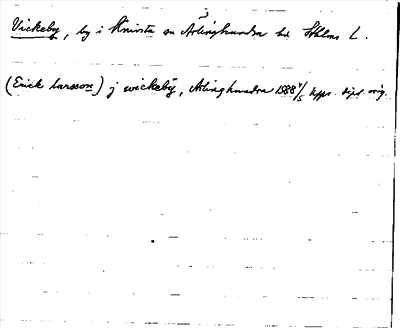 Vickeby, by i Knivsta sn Ärlinghundra hd Sthlms L.
(Erick Larsson) j wickebÿ, Arlinghundra 1588 4/5 Upps. dipl. orig.